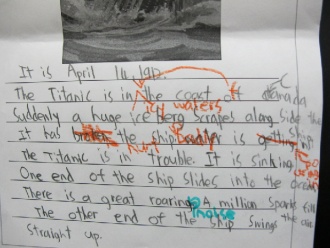 It is April 14, 1912.
The Titanic is in the coast of Canada
Icy waters
Suddenly a huge ice berg scrapes along side the
It has broken the ship Badly is getting ship
hurt
The Titanic is in trouble. It is sinking
One end of the ship slides into the ocean
There is a great roaring A million sparks fill the air
noise
The other end of the ship swings
straight up.